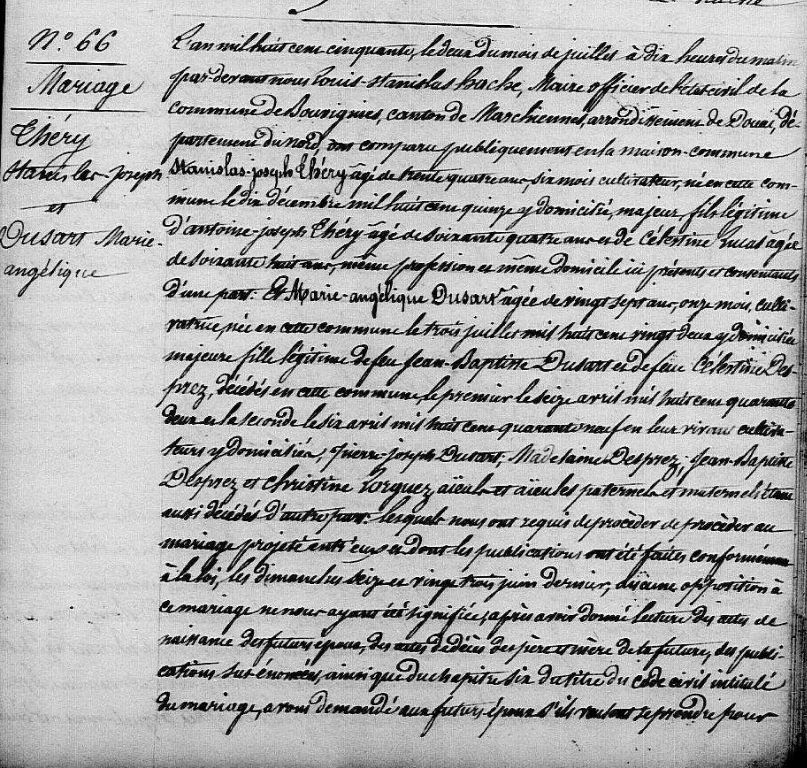 N.° 66
Mariage
Théry
Stanislas-joseph
et
Dusart Marie-
angélique
L'an mil huit cent cinquante, le deux du mois de juillet à dix heures du matin
par-devant nous Louis-Stanislas hache, Maire officier de l'état civil de la
commune de Bouvignies, canton de Marchiennes, arrondissement de Douai, dé-
partement du nord, ont comparu publiquement en la maison-commune
Stanislas-joseph Théry âgé de trente quatre ans, six mois cultivateur, né en cette com-
mune le dix décembre mil huit cent quinze y domicilié, majeur, fils légitime
d'antoine-joseph Théry âgé de soixante quatre ans et de Célestine Lucas âgée
de soixante huit ans, même profession et même domicile ici présents et consentants
d'une part. Et Marie-angélique Dusart âgée de vingt sept ans, onze mois, culti-
vatrice, née en cette commune le trois juillet mil huit cent vingt deux y domiciliée
majeure fille légitime de feu Jean-Baptiste Dusart et de feue Célestine Des-
prez, décédés en cette commune le premier le seize avril mil huit cent quarante
deux et la seconde le six avril mil huit cent quarante neuf en leur vivant cultiva-
teurs y domiciliés, Pierre-joseph Dusart, Madelaine Desprez, Jean-Baptiste
Desprez et Christine Lorquez aïeuls et aïeules paternels et maternels étant
aussi décédés d'autre part. lesquels nous ont requis de procéder de procéder au
mariage projeté entr'eux et dont les publications ont été faites conformément
à la loi, les dimanches seize et vingt trois juin dernier, aucune opposition à
ce mariage ne nous ayant été signifiée, après avoir donné lecture des actes de
naissance des futurs époux, des actes de décès des père et mère de la future, des publi-
cations sus énoncées, ainsi que du chapitre six du titre du code civil intitulé
du mariage, avons demandé aux futurs époux s'ils veulent se prendre pour